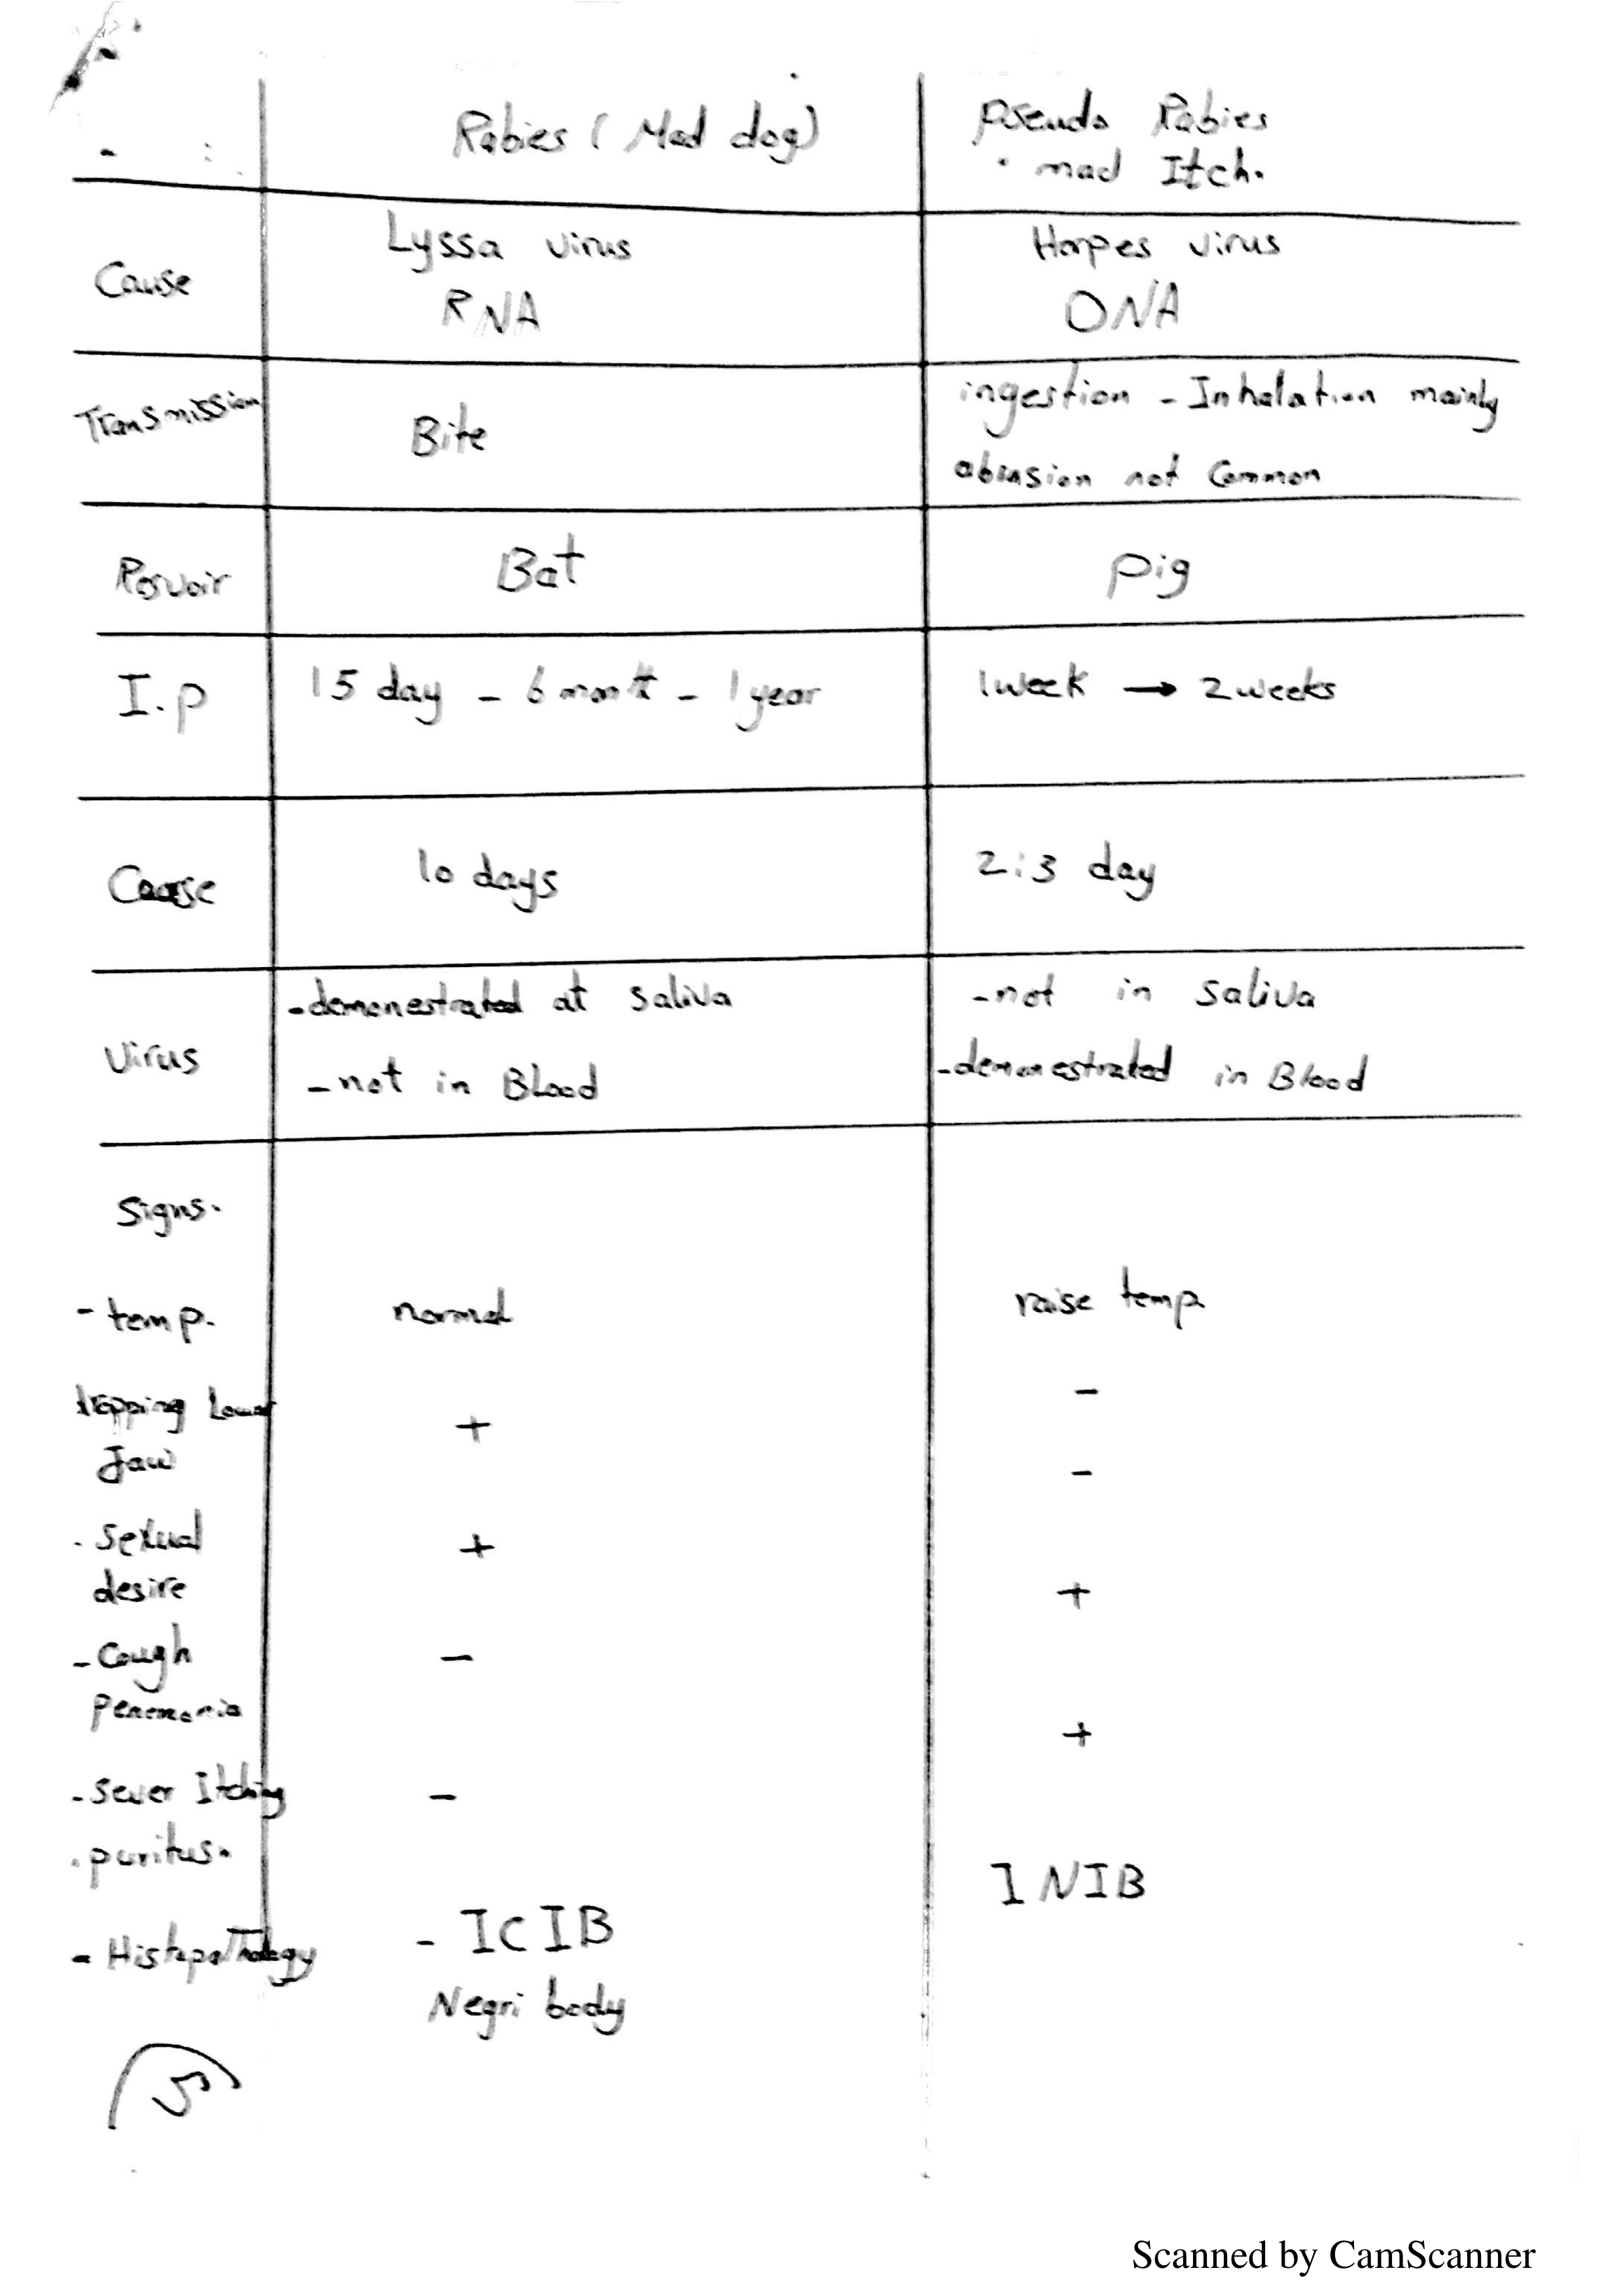 Rabies ( Mad dog)
Pseudo Rabies
mad Itch.
Cause
Lyssa virus
RNA
Harpes virus
DNA
Transmission
Bite
ingestion - Inhalation mainly
abrasion not Common
Resvoir
Bat
Pig
I.P
15 day - 6 month - 1 year
1 week → 2 weeks
Coarse
10 days
2:3 day
Virus
- demonestrated at saliva
- not in Blood
- not in saliva
- demonestrated in Blood
Signs.
- temp.
normal
raise temp.
dropping Lower
Jaw
+
-
. Sexual
desire
+
-
- Cough
penemonia
-
+
- Sever Itching
. puritus.
-
+
- Histopathology
- ICIB
Negri body
INIB
Scanned by CamScanner